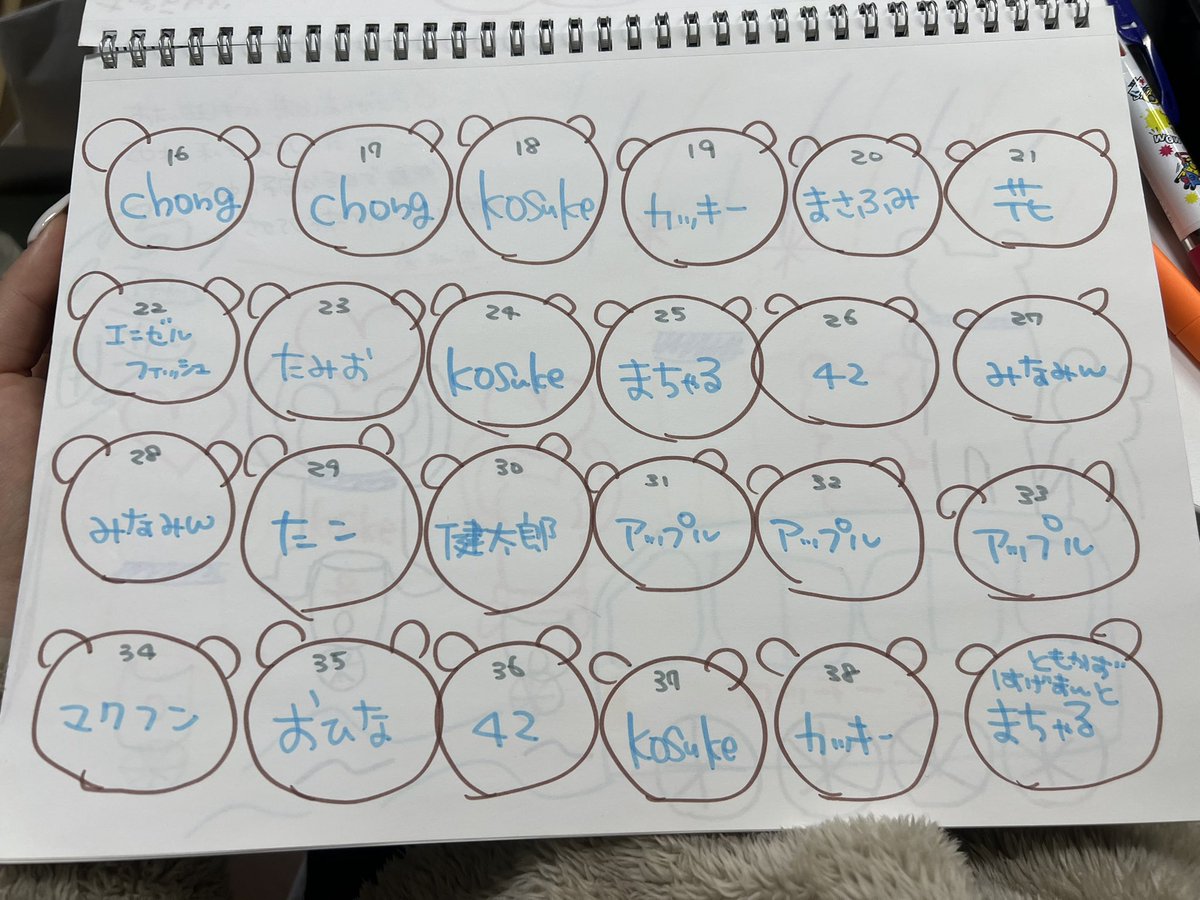 16
chong
17
chong
18
kosuke
19
カッキー
20
まさふみ
21
花
22
エンゼル
フィッシュ
23
たみお
24
kosuke
25
まちゃる
26
42
27
みなみん
28
みなみん
29
たこ
30
健太郎
31
アップル
32
アップル
33
アップル
34
マクフン
35
おひな
36
42
37
kosuke
38
カッキー
ともかず
はげまんと
まちゃる